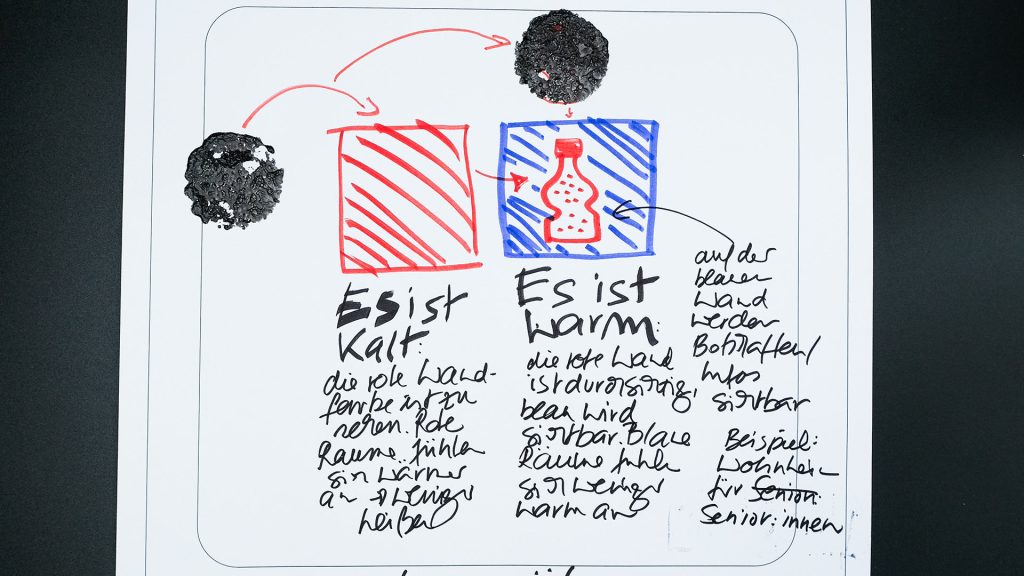 Es ist
Kalt:
die rote Wand-
farbe ist zu
sehen. Rote
Räume fühlen
sich wärmer
an → weniger
heizen
Es ist
warm:
die rote Wand
ist durchsichtig,
blau wird
sichtbar. Blaue
Räume fühlen
sich weniger
warm an
auf der
blauen
Wand
werden
Botschaften/
Infos
sichtbar
Beispiel:
Wohnheim
für Senior:
Senior:innen